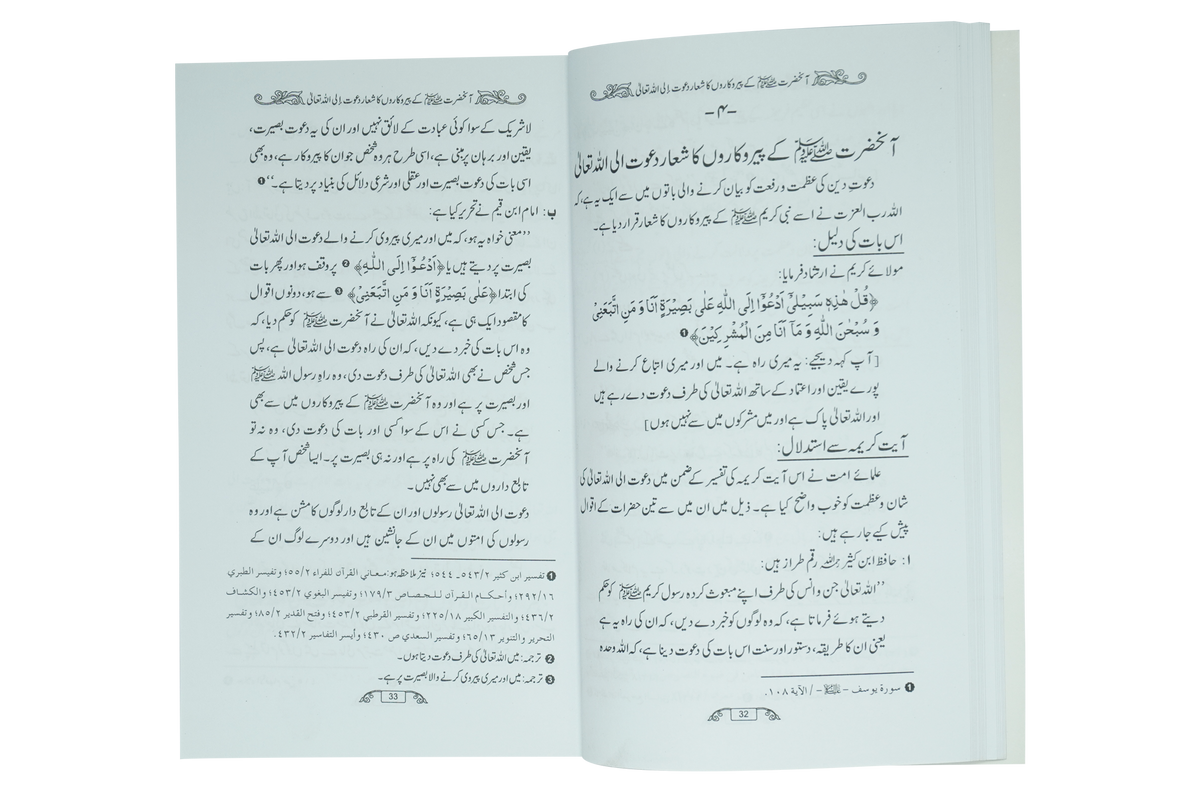 آنحضرت ﷺ کے پیروکاروں کا شعار دعوت اِلی اللہ تعالیٰ
-۴-
آنحضرت ﷺ کے پیروکاروں کا شعار دعوت الی اللہ تعالیٰ
دعوتِ دین کی عظمت و رفعت کو بیان کرنے والی باتوں میں سے ایک یہ ہے، کہ
اللہ رب العزت نے اسے نبی کریم ﷺ کے پیروکاروں کا شعار قرار دیا ہے۔
اس بات کی دلیل:
مولائے کریم نے ارشاد فرمایا:
﴿قُلْ هٰذِهٖ سَبِيْلِيْٓ اَدْعُوْٓا اِلَى اللّٰهِ عَلٰى بَصِيْرَةٍ اَنَا وَ مَنِ اتَّبَعَنِيْ
وَ سُبْحٰنَ اللّٰهِ وَ مَآ اَنَا مِنَ الْمُشْرِكِيْنَ﴾ ❶
[آپ کہہ دیجیے: یہ میری راہ ہے۔ میں اور میری اتباع کرنے والے
پورے یقین اور اعتماد کے ساتھ اللہ تعالیٰ کی طرف دعوت دے رہے ہیں
اور اللہ تعالیٰ پاک ہے اور میں مشرکوں میں سے نہیں ہوں]
آیت کریمہ سے استدلال:
علمائے امت نے اس آیت کریمہ کی تفسیر کے ضمن میں دعوت الی اللہ تعالیٰ کی
شان و عظمت کو خوب واضح کیا ہے۔ ذیل میں ان میں سے تین حضرات کے اقوال
پیش کیے جا رہے ہیں:
ا: حافظ ابن کثیر رحمہ اللہ رقم طراز ہیں:
’’اللہ تعالیٰ جن و انس کی طرف اپنے مبعوث کردہ رسول کریم ﷺ کو حکم
دیتے ہوئے فرماتا ہے، کہ وہ لوگوں کو خبر دے دیں، کہ ان کی راہ یہ ہے
یعنی ان کا طریقہ، دستور اور سنت اس بات کی دعوت دینا ہے، کہ اللہ وحدہ
❶ سورة يوسف - علیہ السلام - / الآية ١٠٨.
32
آنحضرت ﷺ کے پیروکاروں کا شعار دعوت اِلی اللہ تعالیٰ
لاشریک کے سوا کوئی عبادت کے لائق نہیں اور ان کی یہ دعوت بصیرت،
یقین اور برہان پر مبنی ہے، اسی طرح ہر وہ شخص جو ان کا پیروکار ہے، وہ بھی
اسی بات کی دعوت بصیرت اور عقلی اور شرعی دلائل کی بنیاد پر دیتا ہے۔‘‘ ❶
ب: امام ابن قیم نے تحریر کیا ہے:
’’معنی خواہ یہ ہو، کہ میں اور میری پیروی کرنے والے دعوت الی اللہ تعالیٰ
بصیرت پر دیتے ہیں یا ﴿اَدْعُوْٓا اِلَى اللّٰهِ﴾ ❷ پر وقف ہو اور پھر بات
کی ابتدا ﴿عَلٰى بَصِيْرَةٍ اَنَا وَ مَنِ اتَّبَعَنِيْ﴾ ❸ سے ہو، دونوں اقوال
کا مقصود ایک ہی ہے، کیونکہ اللہ تعالیٰ نے آنحضرت ﷺ کو حکم دیا، کہ
وہ اس بات کی خبر دے دیں، کہ ان کی راہ دعوت الی اللہ تعالیٰ ہے، پس
جس شخص نے بھی اللہ تعالیٰ کی طرف دعوت دی، وہ راہِ رسول اللہ ﷺ
اور بصیرت پر ہے اور وہ آنحضرت ﷺ کے پیروکاروں میں سے بھی
ہے۔ جس کسی نے اس کے سوا کسی اور بات کی دعوت دی، وہ نہ تو
آنحضرت ﷺ کی راہ پر ہے اور نہ ہی بصیرت پر۔ ایسا شخص آپ کے
تابع داروں میں سے بھی نہیں۔
دعوت الی اللہ تعالیٰ رسولوں اور ان کے تابع دار لوگوں کا مشن ہے اور وہ
رسولوں کی امتوں میں ان کے جانشین ہیں اور دوسرے لوگ ان کے
❶ تفسیر ابن کثیر ٥٤٣/٢ـ ٥٤٤؛ نیز ملاحظہ ہو: معاني القرآن للفراء ٥٥/٢؛ وتفسير الطبري
٢٩٢/١٦؛ وأحكام القرآن للجصاص ١٧٩/٣؛ وتفسير البغوي ٤٥٣/٢؛ والكشاف
٤٣٦/٢؛ والتفسير الكبير ٢٢٥/١٨؛ وتفسير القرطبي ٤٥٣/٢؛ وفتح القدير ٨٥/٢؛ وتفسير
التحرير والتنوير ٦٥/١٣؛ وتفسير السعدي ص ٤٣٠؛ وأيسر التفاسير ٤٣٢/٢.
❷ ترجمہ: میں اللہ تعالیٰ کی طرف دعوت دیتا ہوں۔
❸ ترجمہ: میں اور میری پیروی کرنے والا بصیرت پر ہے۔
33